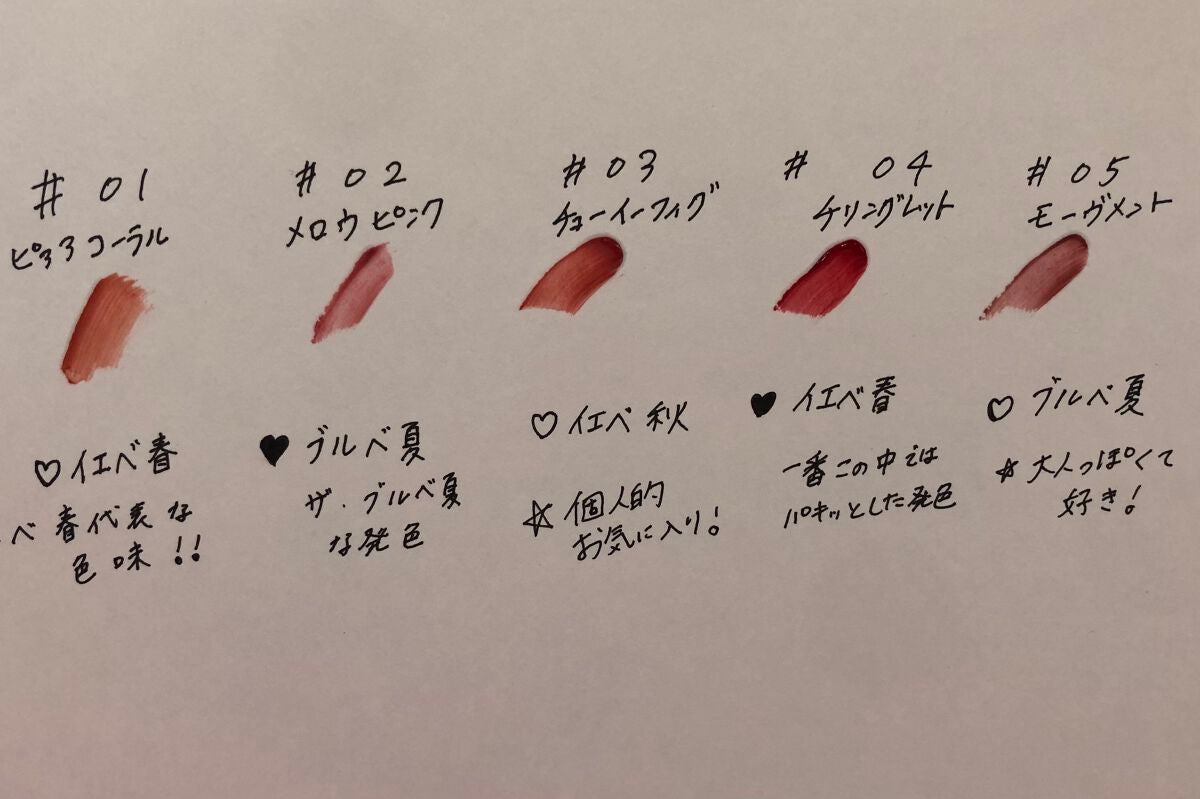 # 01
ピュアコーラル
♡イエベ春
ベ春代表な
色味!!
# 02
メロウピンク
♥ブルベ夏
ザ・ブルベ夏
な発色
# 03
チューイーフィグ
♡イエベ秋
☆個人的
お気に入り!
# 04
チリングレット
♥イエベ春
一番この中では
パキッとした発色
# 05
モーヴメント
♡ブルベ夏
☆大人っぽくて
好き!